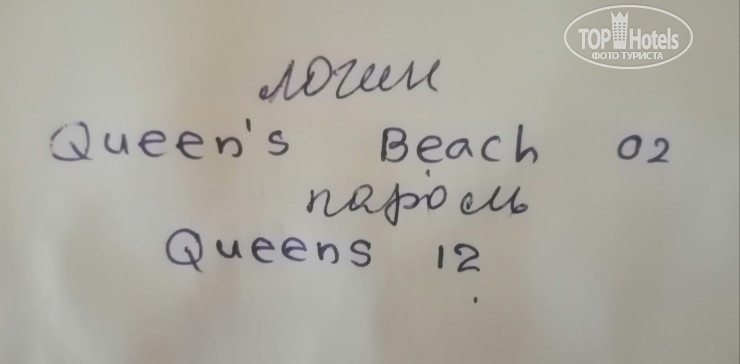 TOP Hotels
ФОТО ТУРИСТА
логин
Queen's Beach 02
пароль
Queens 12